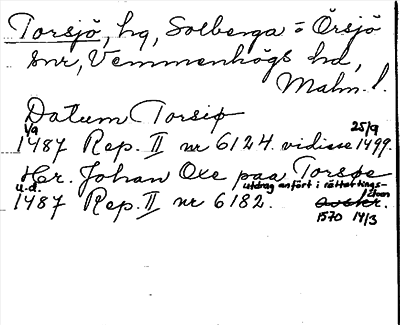 Torsjö, hg, Solberga = Örsjö
snr, Vemmenhögs hd,
Malm. l.
Datum Torsiø
1/9 25/9
1487 Rep. II nr 6124. vidisse 1499.
Her. Johan Oxe paa Torsøe
u.d. utdrag anfört i rättartings-
1487 Rep. II nr 6182.
1570 14/3